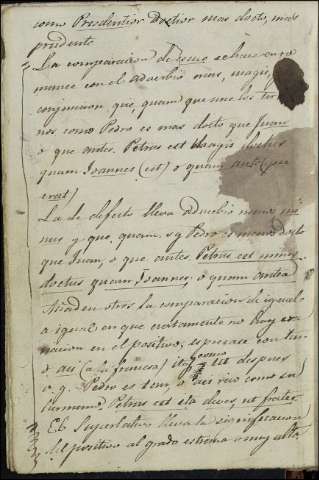 como Prudentior Doctior mas docto, mas
prudente
La comparacion de se hace
con el adverbio mas, magis, y
conjuncion que, quam que une los ter-
nos como Pedro es mas docto que Juan
o que antes. Petrus est Magis doctus
quam Joannes (est) o quam antè (
erat)
La de defecto lleva adverbio menos mi-
nus y que, quam. v g Pedro es menos docto
que Juan, o que antes Petrus est minus
doctus quam Joannes, o quam antea
Añaden otros la comparacion de igual
a igual en que exactamente no hay
en el positivo, se hace con tan
o asi (a la francesa) ita, como ut despues
v. g. Pedro es tan, o asi rico como su
hermano, Petrus est ita dives, ut frater.
El Superlativo lleva la significacion
del positivo al grado extremo o muy alto,